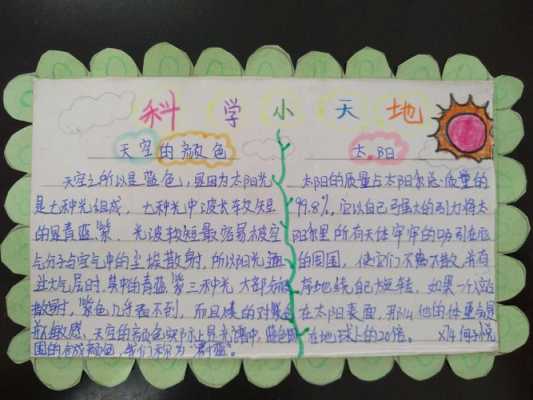 科学小天地
天空的颜色
天空之所以是蓝色,是因为太阳光
是七种光组成,七种光中波长较短
的是青蓝紫,光波较短最容易被空
气分子与空气中的尘埃散射,所以阳光通
过大气层时,其中的青蓝紫三种光大部分被
散射,紫色几乎看不到,而且
敏感,天空的颜色实际上是光谱中蓝色
的合成颜色,我们称为"蔚蓝"。
太阳
太阳的质量占太阳系总质量的
99.8%,它以自己强大的引力将太
阳系里所有天体牢牢的吸引在
的周围,使它们不离不散,井有
有序地绕自己旋转,如果一个
在太阳表面,那么他的体重会是
在地球上的20倍。